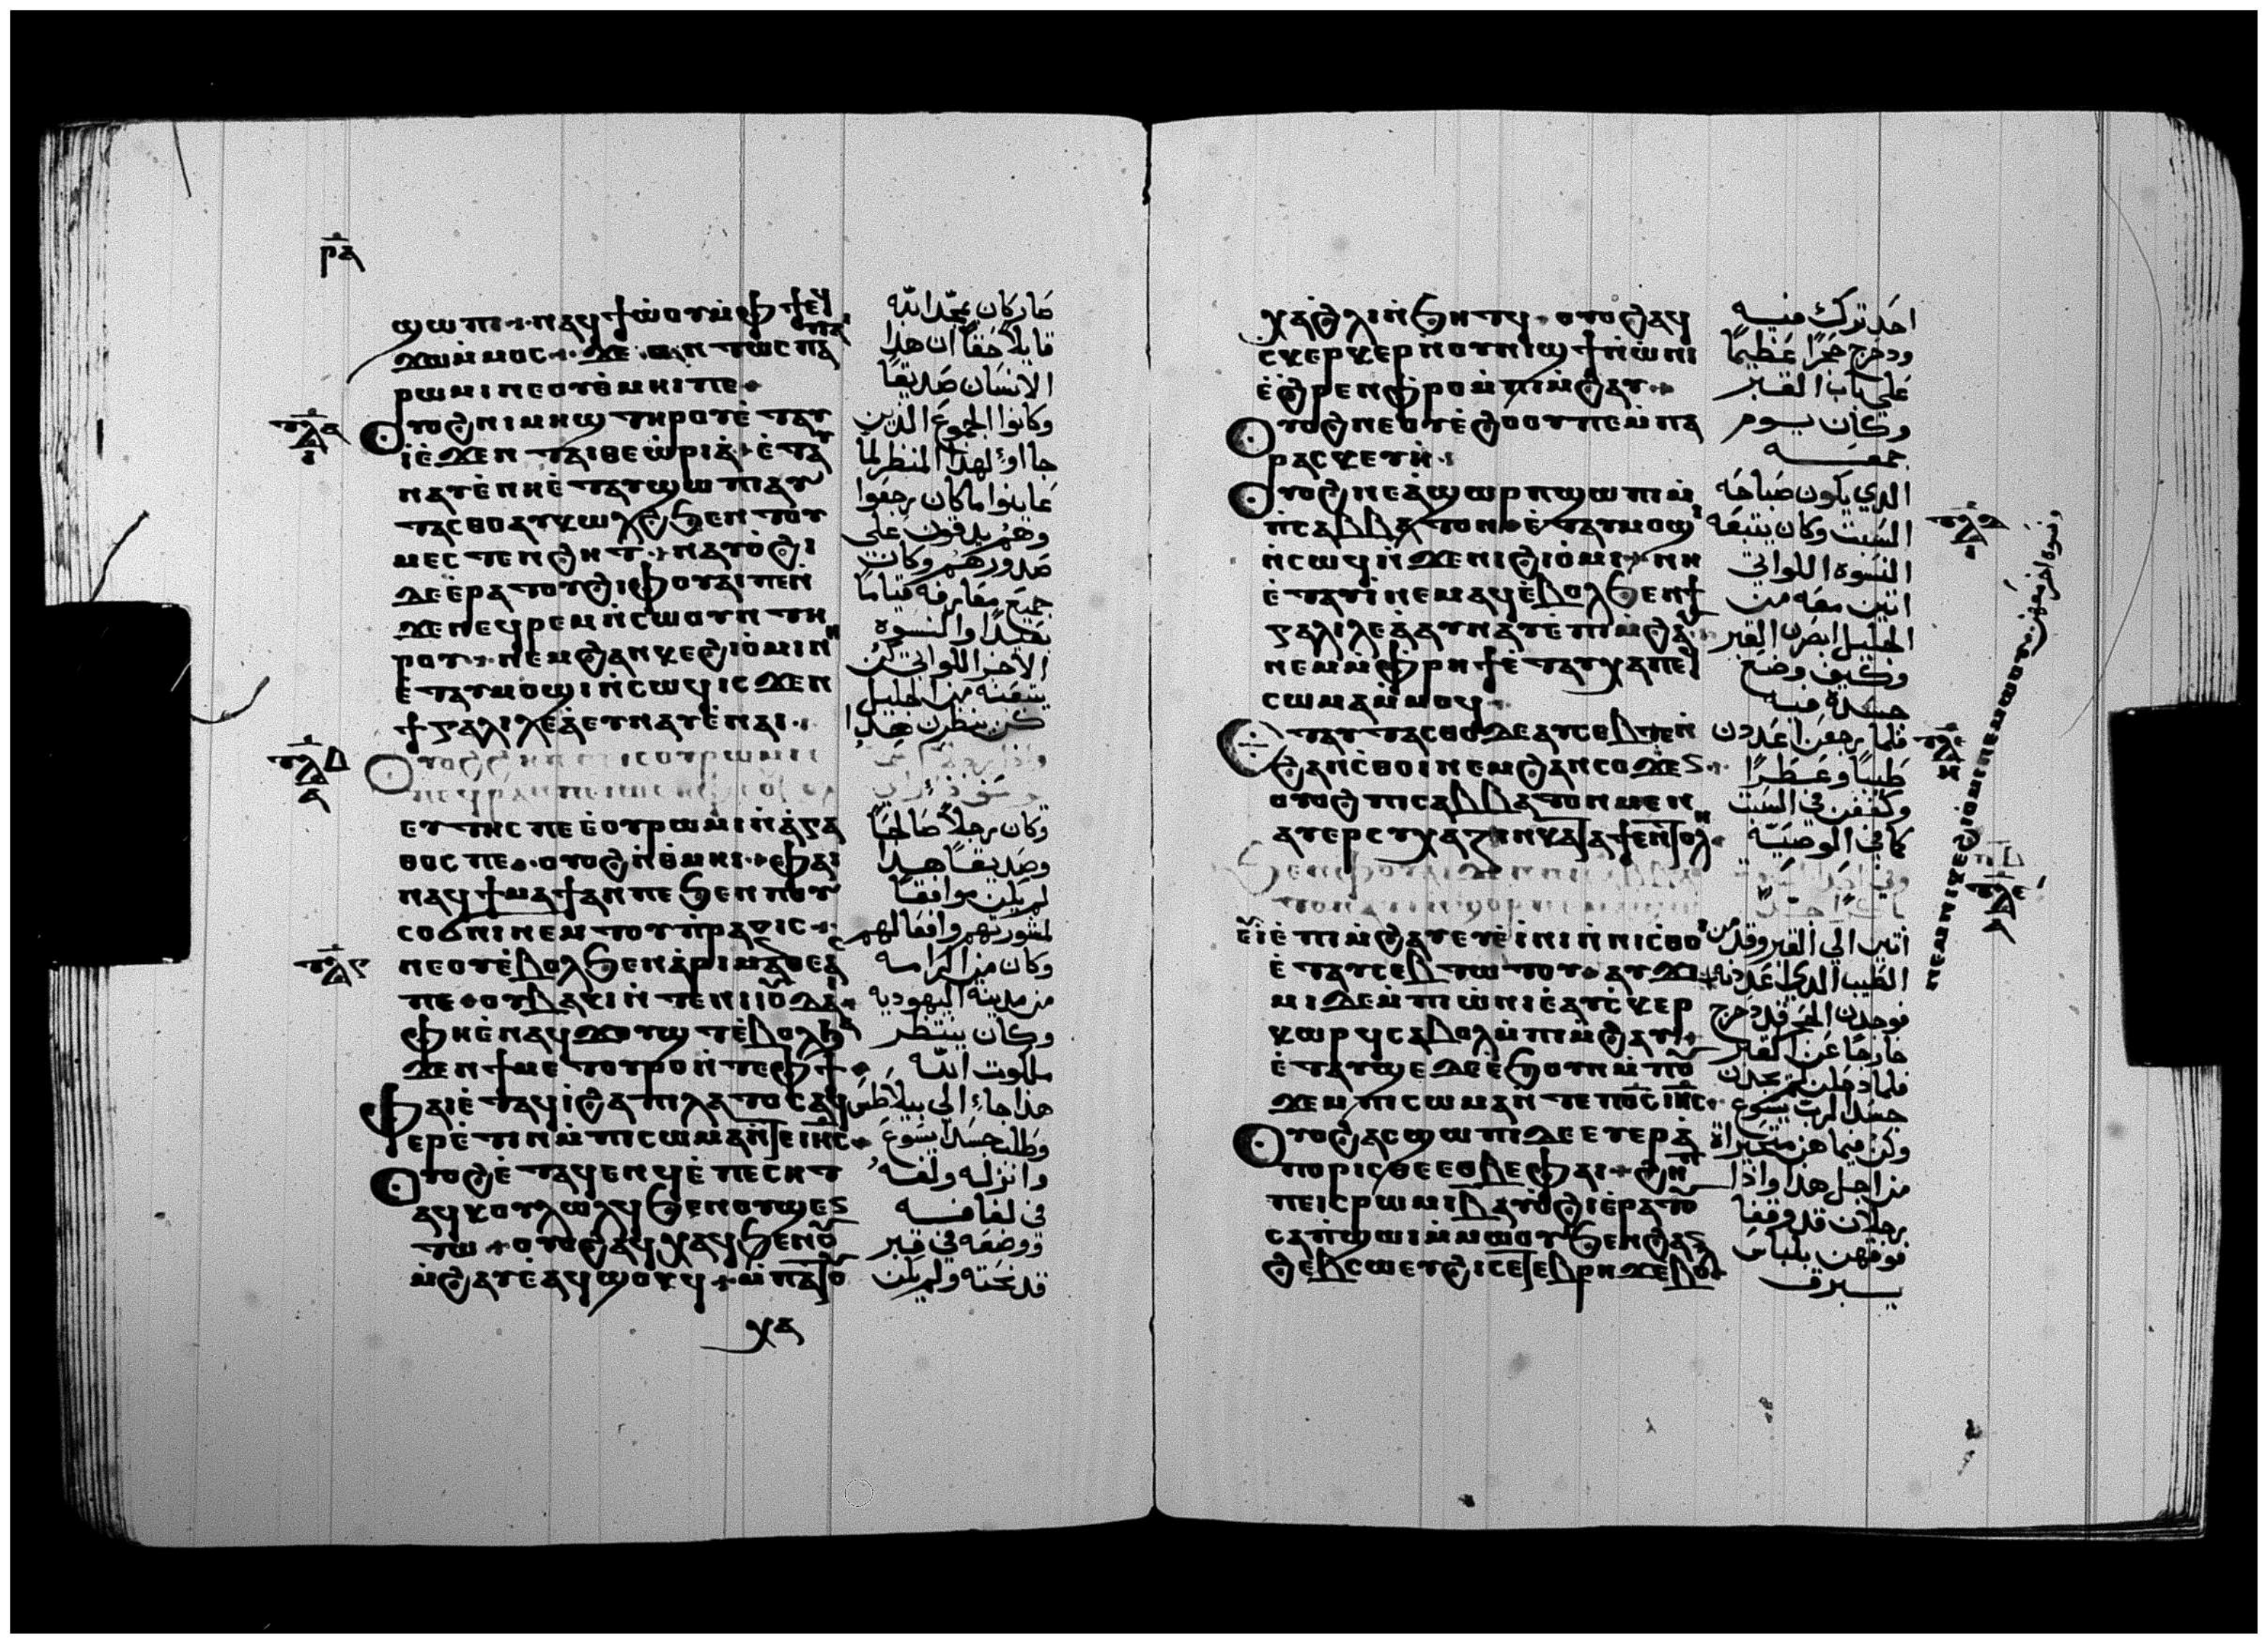 ⲣⲁ
ϣⲱⲡⲓ ⲛⲁϥϯⲱⲟⲩ ⲙ̀ⲫϯ ⲉϥ
ϫⲱ ⲙ̀ⲙⲟⲥ ϫⲉ ⲟⲛⲧⲱⲥ ⲡⲁⲓ
ⲣⲱⲙⲓ ⲛⲉ ⲟⲩⲑ̀ⲙⲏⲓ ⲡⲉ
ⲟⲩⲟϩ ⲛⲓⲙⲏϣ ⲧⲏⲣⲟⲩ ⲉ̀ⲧⲁⲩ
ⲓ̀ ⲉ̀ϫⲉⲛ ⲧⲁⲓⲑⲉⲱ̀ⲣⲓⲁ̀ ⲉ̀ⲧⲁⲩ
ⲛⲁⲩ ⲉ̀ⲛⲏ ⲉ̀ⲧⲁⲩϣⲱⲡⲓ ⲁⲩ
ⲧⲁⲥⲑⲟ ⲁⲩⲕⲱⲗϩ ϧⲉⲛ ⲧⲟⲩ
ⲙⲉⲥⲧⲉⲛϩⲏⲧ ⲛⲁⲩⲟ̀ϩⲓ
ⲇⲉ ⲉ̀ⲣⲁⲧⲟⲩ ϩⲓ ⲫⲟⲩⲉⲓ ⲡⲉ ⲛ̀
ϫⲉ ⲛⲉϥⲣⲉⲙⲛ̀ⲥⲱⲟⲩⲛ ⲧⲏ
ⲣⲟⲩ ⲛⲉⲙ ϩⲁⲛⲕⲉϩⲓⲟ̀ⲙⲓ ⲛⲏ
ⲉ̀ⲧⲁⲩⲙⲟϣⲓ ⲛ̀ⲥⲱϥ ⲓⲥϫⲉⲛ
ϯⲅⲁⲗⲓⲗⲉⲁ̀ ⲉⲩⲛⲁⲩ ⲉ̀ⲛⲁⲓ
ⲉⲩⲧⲏⲥ ⲡⲉ ⲉ̀ⲟⲩⲣⲱⲙⲓ ⲛ̀ⲁ̀ⲅⲁ
ⲑⲟⲥ ⲡⲉ ⲟⲩⲟϩ ⲛ̀ⲑ̀ⲙⲏⲓ ⲫⲁⲓ
ⲛⲁϥϯⲙⲁϯ ⲁⲛ ⲡⲉ ϧⲉⲛ ⲡⲟⲩ
ⲥⲟϭⲛⲓ ⲛⲉⲙ ⲧⲟⲩⲡ̀ⲣⲁⲝⲓⲥ
ⲛⲉ ⲟⲩⲉ̀ⲃⲟⲗ ϧⲉⲛ ⲁ̀ⲣⲓⲙⲁⲑⲉⲁ̀ⲥ
ⲡⲉ ⲟⲩⲃⲁⲕⲓ ⲛ̀ⲧⲉ ⲛⲓⲓⲟⲩⲇⲁⲓ
ⲫⲏ ⲉ̀ⲛⲁϥϫⲟⲩϣⲧ ⲉ̀ⲃⲟⲗ ϧⲁ
ϫⲉⲛ ϯⲙⲉⲧⲟⲩⲣⲟ ⲛ̀ⲧⲉ ⲫϯ
ⲫⲁⲓ ⲉ̀ⲧⲁϥⲓ̀ ϩⲁ ⲡⲓⲗⲁⲧⲟⲥ ⲁϥ
ⲉⲣⲉ̀ⲧⲓⲛ ⲙ̀ⲡⲓⲥⲱⲙⲁ ⲛ̀ⲧⲉ ⲓⲏⲥ
ⲟⲩⲟϩ ⲉ̀ⲧⲁϥⲉⲛϥ ⲉ̀ⲡⲉⲥⲏⲧ
ⲁϥⲕⲟⲩⲗⲱⲗϥ ϧⲉⲛ ⲟⲩϣⲉⲛ
ⲧⲱ ⲟⲩⲟϩ ⲁϥⲭⲁϥ ϧⲉⲛ ⲟⲩ
ⲙ̀ϩⲁⲩ ⲉ̀ⲁϥϣⲟⲕϥ ⲙ̀ⲡⲁⲧⲟⲩ
ⲭⲁ
صار كان يمجد الله
قايلاً حقاً ان هذا
الانسان صديقاً
وكانوا الجموع الذين
جااوا لهذا المنظر لما
عاينوا ما كان رجعوا
وهم يدقون على
صدورهم وكان
جميع معارفه قياماً
بعيداً والنسوة
الاخر اللواتي كن
يتبعنه من الجليل
كن ينظرن هذا
وكان رجلاً صالحاً
وصديقاً هذا
لم يكن موافقاً
لمشورتهم وافعالهم
وكان من الرامسه
من مدينة اليهودية
وكان ينتظر
ملكوت الله
هذا جاء الى بيلاطس
وطلب جسد يسوع
وانزله ولفه
في لفافه
ووضعه في قبر
قد نحته ولم يكن
ⲭⲁ ϩ̀ⲗⲓ ⲛ̀ϧⲏⲧϥ ⲟⲩⲟϩ ⲁϥ
ⲥⲕⲉⲣⲕⲉⲣ ⲛ̀ⲟⲩⲛⲓϣϯ ⲛ̀ⲱ̀ⲛⲓ
ⲉ̀ϩ̀ⲣⲉⲛ ⲫ̀ⲣⲟ ⲙ̀ⲡⲓⲙ̀ϩⲁⲩ
ⲟⲩⲟϩ ⲛⲉ ⲟⲩⲉ̀ϩⲟⲟⲩ ⲡⲉ ⲙ̀ⲡⲁ
ⲣⲁⲥⲕⲉⲩⲏ
ⲟⲩⲟϩ ⲛⲉ ⲁ̀ϣⲱⲣⲡ ϣⲱⲡⲓ ⲙ̀
ⲡⲥⲁⲃⲃⲁⲧⲟⲛ ⲉ̀ⲧⲁⲩⲙⲟϣⲓ
ⲛ̀ⲥⲱϥ ⲛ̀ϫⲉ ⲛⲓϩⲓⲟ̀ⲙⲓ ⲛⲏ
ⲉ̀ⲧⲁⲩⲓ̀ ⲛⲉⲙⲁϥ ⲉ̀ⲃⲟⲗ ϧⲉⲛ ϯ
ⲅⲁⲗⲓⲗⲉⲁ̀ ⲁⲩⲛⲁⲩ ⲉ̀ⲡⲓⲙ̀ϩⲁⲩ
ⲛⲉⲙ ⲙ̀ⲫⲣⲏϯ ⲉ̀ⲧⲁⲩⲭⲁ ⲡⲉϥ
ⲥⲱⲙⲁ ⲙ̀ⲙⲟϥ
ⲉ̀ⲧⲁⲩⲧⲁⲥⲑⲟ ⲇⲉ ⲁⲩⲥⲉⲃⲧⲉ
ϩⲁⲛⲥ̀ⲑⲟⲓ ⲛⲉⲙ ϩⲁⲛⲥⲟϫⲉⲛ
ⲟⲩⲟϩ ⲡⲓⲥⲁⲃⲃⲁⲧⲟⲛ ⲙⲉⲛ
ⲁⲩⲉⲣⲏⲥⲩⲭⲁⲍⲓⲛ ⲕⲁⲧⲁ ϯⲉⲛⲧⲟⲗⲏ
ⲉ̀ⲓ̀ ⲉ̀ⲡⲓⲙ̀ϩⲁⲩ ⲉⲩⲉ̀ⲓⲛⲓ ⲛ̀ⲛⲓⲥ̀ⲑⲟⲓ
ⲉ̀ⲧⲁⲩⲥⲉⲃⲧⲱⲧⲟⲩ ⲁⲩϫⲓ
ⲙⲓ ⲇⲉ ⲙ̀ⲡⲓⲱ̀ⲛⲓ ⲉ̀ⲁⲩⲥ̀ⲕⲉⲣ
ⲕⲱⲣϥ ⲥⲁⲃⲟⲗ ⲙ̀ⲡⲓⲙ̀ϩⲁⲩ
ⲉ̀ⲧⲁⲩϣⲉ ⲇⲉ ⲉ̀ϧⲟⲩⲛ ⲙ̀ⲡⲟⲩ
ϫⲉⲙ ⲡⲓⲥⲱⲙⲁ ⲛ̀ⲧⲉ ⲡⲟ̅ⲥ̅ ⲓⲏ̅ⲥ̅
ⲟⲩⲟϩ ⲁⲥϣⲱⲡⲓ ⲇⲉ ⲉⲩⲉⲣⲁ̀
ⲡⲟⲣⲓⲥⲑⲉ ⲉⲑⲃⲉ ⲫⲁⲓ ϩⲏⲡ
ⲡⲉ ⲓⲥ ⲣⲱⲙⲓ ⲃ̅ ⲁⲩⲟ̀ϩⲓ ⲉ̀ⲣⲁⲧⲟⲩ
ⲥⲁⲡ̀ϣⲱⲓ ⲙ̀ⲙⲱⲟⲩ ϧⲉⲛ ϩⲁⲛ
ϩⲉⲃⲥⲱ ⲉⲩϩⲓⲥⲉⲧⲉⲃⲣⲏϫ ⲉ̀ⲃⲟⲗ
احد ترك فيه
ودحرج حجراً عظيماً
على باب القبر
وكان يوم
جمعه
الذي يكون صباحه
السبت وكان يتبعه
النسوة اللواتي
اتين معه من
الجليل ابصرن القبر
وكيف وضع
جسده فيه
فلما رجعن اعددن
طيباً وعطراً
وكففن في السبت
كما في الوصية
أتين الى القبر وقدمن
الطيب الذي اعددنه
فوجدن الحجر قد دحرج
خارجاً عن القبر
فلما دخلن لم يجدن
جسد الرب يسوع
وكن فيما هن متحيراة
من اجل هذا واذا
برجلان قد وقفا
فوقهن بلباس
يبرق
ⲛⲉⲙ ⲛⲓⲕⲉϩⲓⲟ̀ⲙⲓ ⲛⲉⲙⲱⲟⲩ
ونسوة اخر معهن